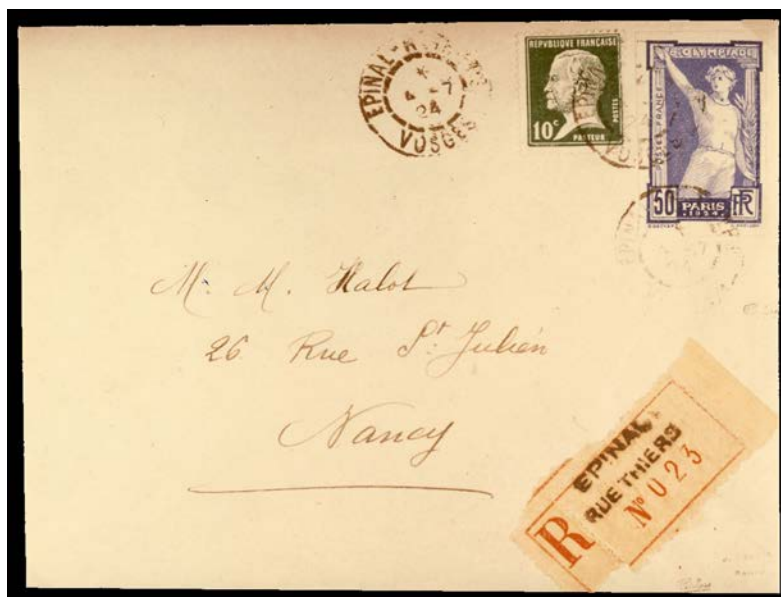 EPINAL
4 - 7
24
VOSGES
REPVBLIQUE FRANÇAISE
10c
POSTES
PASTEUR
8e OLYMPIADE
POSTES FRANCE
50
PARIS
1924
RF
M. M. Halot
26 Rue St. Julien
Nancy
EPINAL
RUE THIERS
R
No 023